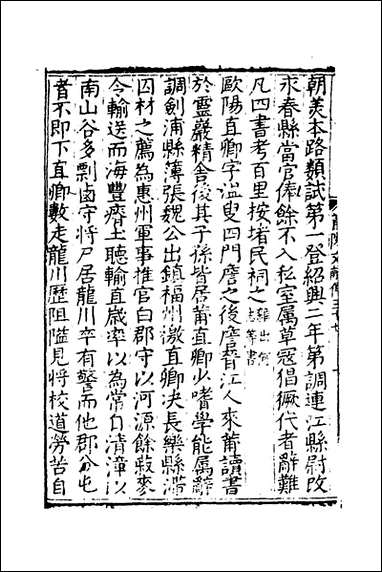 朝美本路類試第一登紹興二年第調連江縣尉改
永春縣當官俸餘不入私室属草寇猖獗代者辭難
凡四書考百里按堵民祠之
歐陽直卿字溢叟四門詹之後詹晉江人來莆讀書
於靈巖精舍後其子孫皆居莆直卿少嗜學能属辭
調劍浦縣簿張魏公出鎮福州檄直卿决長樂縣滯
囚材之薦為惠州軍事推官白郡守以河源餘穀麥
令輸送而海豐瘠土聽輸直歲率以為常自清漳以
南山谷多剽鹵守將尸居龍川卒有警而他郡分屯
者不即下直卿數走龍川歷阻隘見將校道勞苦自